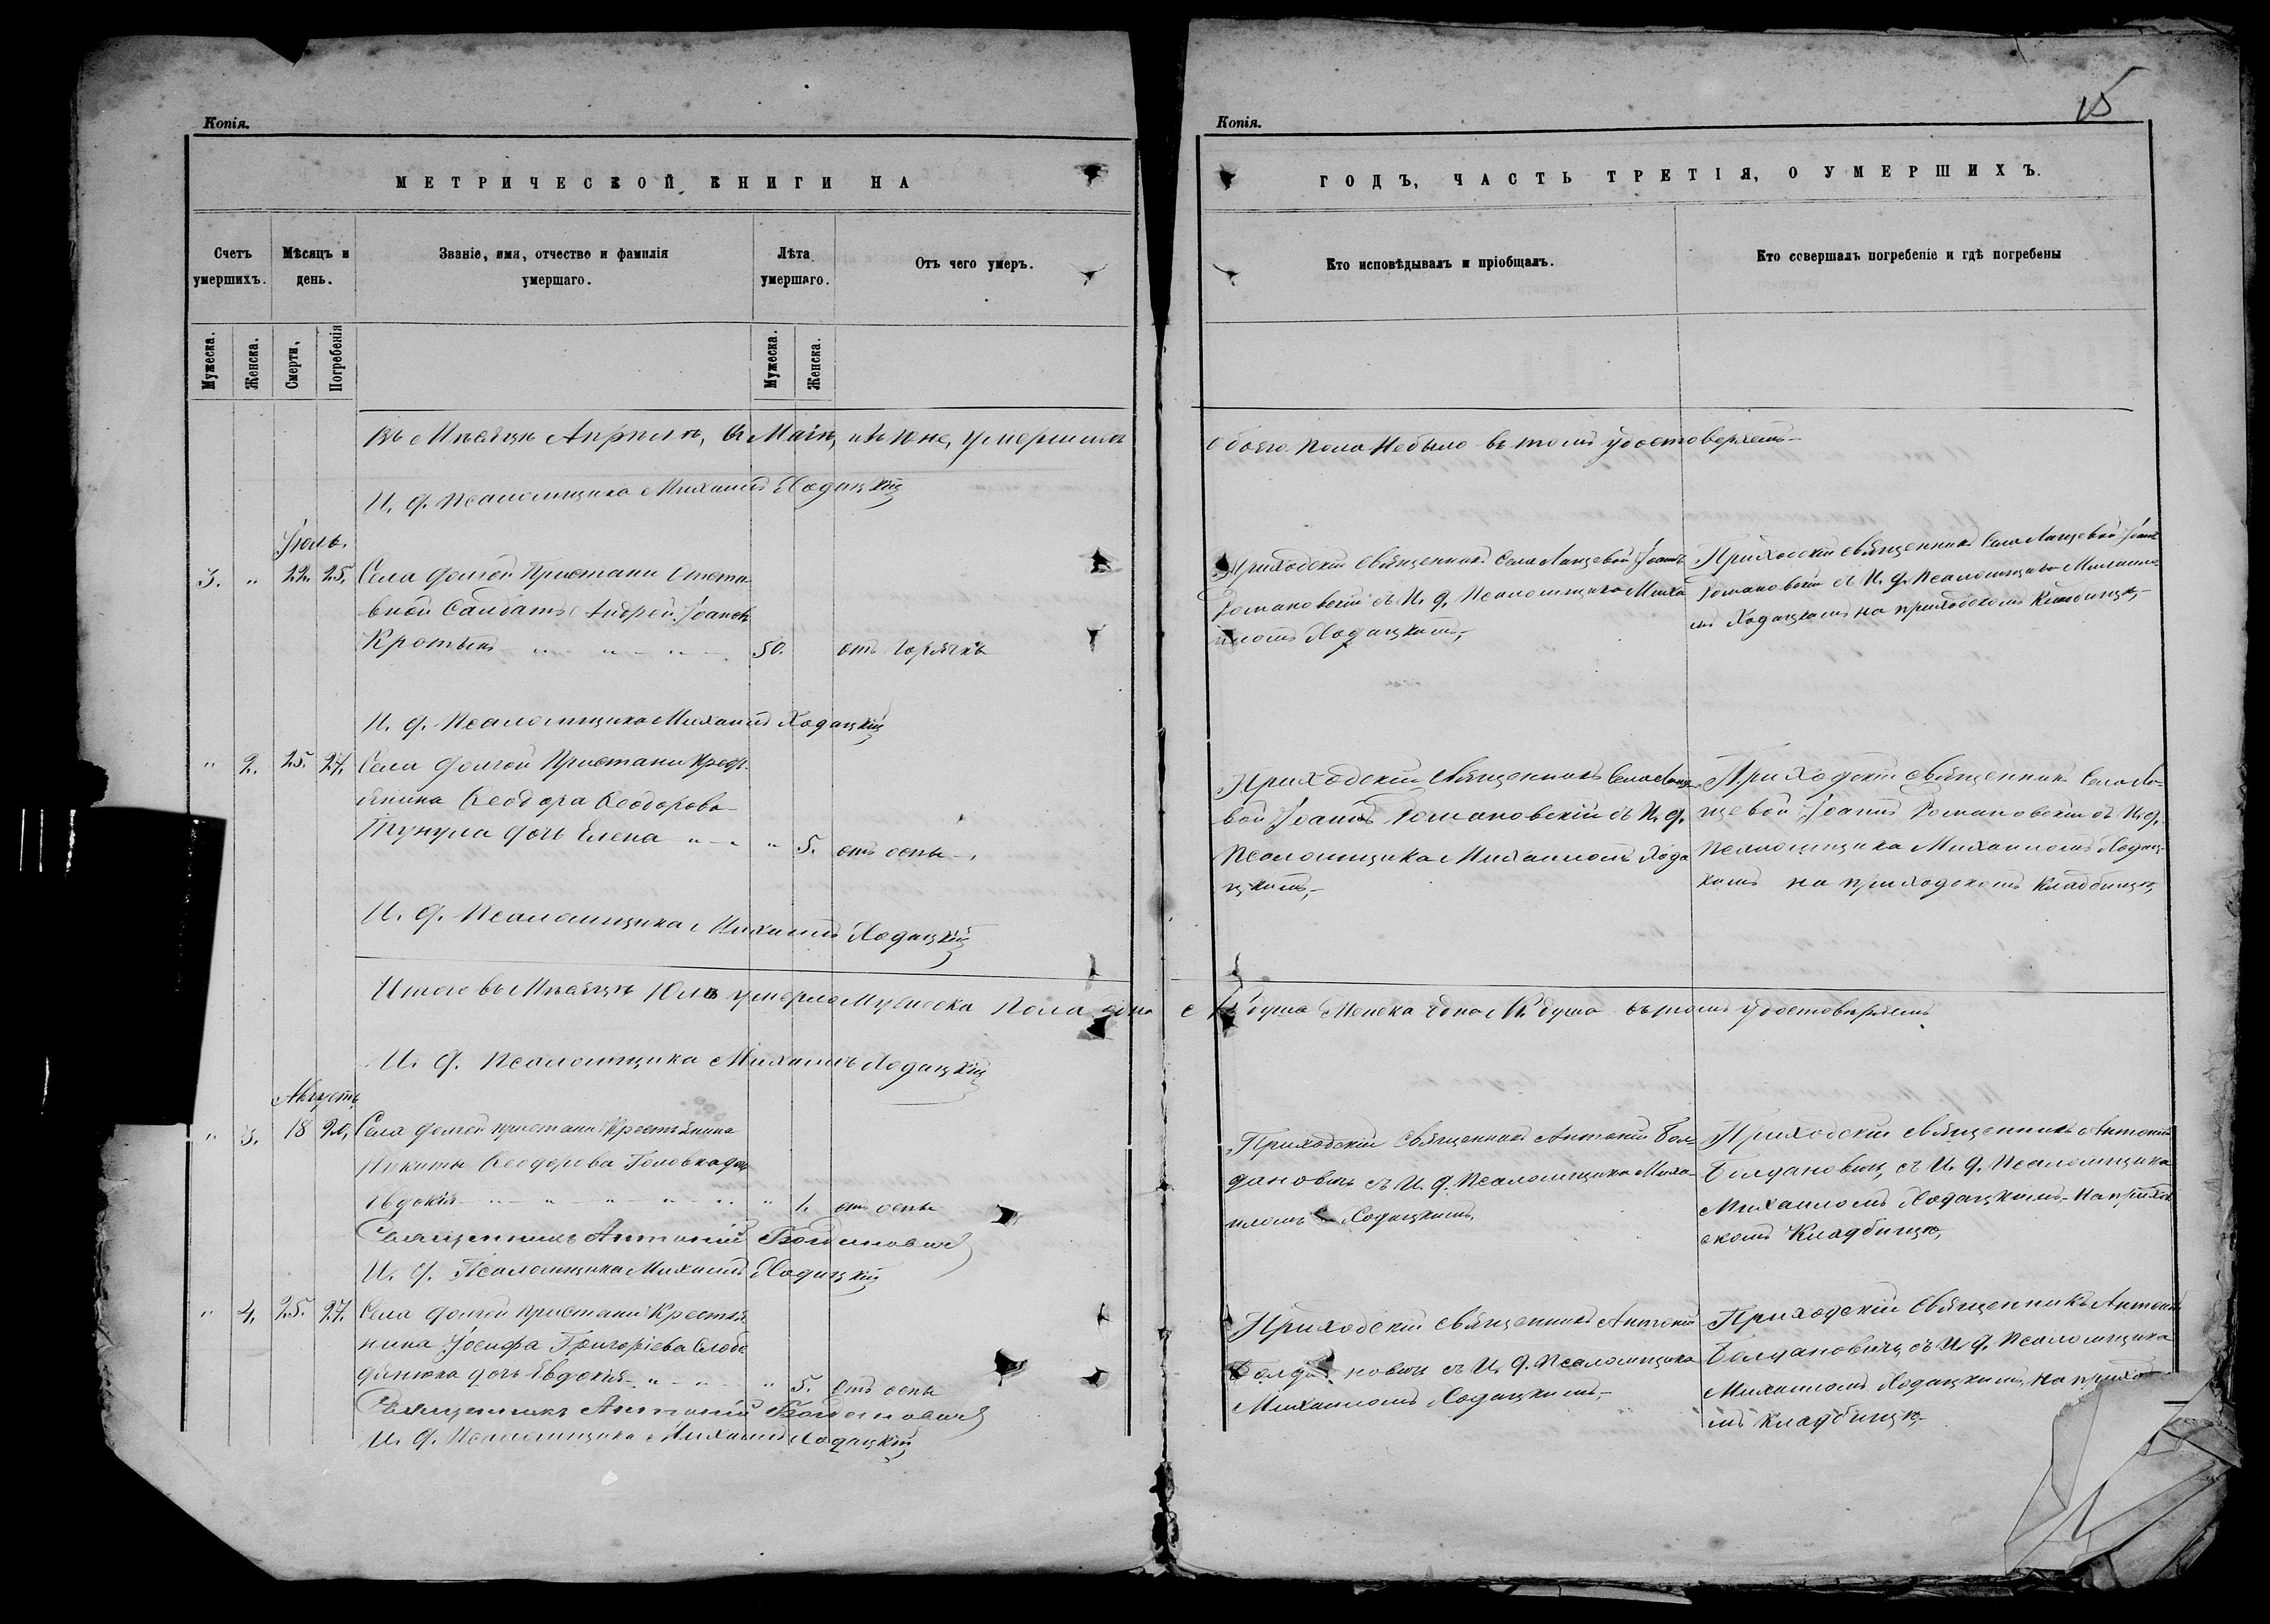 Копія.
МЕТРИЧЕСКОЙ КНИГИ НА
Счетъ умершихъ.
Мѣсяцъ и день.
Званіе, имя, отчество и фамилія умершаго.
Лѣта умершаго.
Отъ чего умеръ.
Мужеска.
Женска.
Смерти,
Погребенія
Мужеска.
Женска.
Въ Мѣсяцѣ Апрѣлѣ, въ Маіѣ, и въ Юне, умершихъ
И. ф. Псаломщика Михаилъ Ходацкій
Іюль.
3. " 22. 25. Села Долгой Пристани Отста-
вной Салдатъ Андрей Іоановъ
Кротыкъ " - " - " - 50. отъ Горячкѣ
И. ф. Псаломщика Михаилъ Ходацкій
" 2. 25. 27. Села Долгой Пристани Крест-
янина Ѳеодора Ѳеодорова
дочь Елена " - " " 5. отъ оспы
И. ф. Псаломщика Михаилъ Ходацкій
Итого въ Мѣсяцѣ Юлѣ умерло Мужеска Пола одна
И. ф. Псаломщика Михаилъ Ходацкій
Августъ
" 3. 18 20, Села Долгой пристани Крестьянина
Никиты Ѳеодорова Головка дочь
Евдокія " - " - " - " " 1. отъ оспы
Священникъ Антоній Богдановичъ
И. ф. Псаломщика Михаилъ Ходацкій
" 4. 25. 27. Села Долгой пристани Крестья
нина Іосифа Григоріева Слобо
дянюка дочь Евдокія " - " - " 5. Отъ оспы
Священникъ Антоній Богдановичъ
И. ф. Псаломщика Михаилъ Ходацкій
15
Копія.
ГОДЪ, ЧАСТЬ ТРЕТІЯ, О УМЕРШИХЪ.
Кто исповѣдывалъ и пріобщалъ.
Кто совершалъ погребеніе и гдѣ погребены
обоего Пола Небыло въ томъ удостоверяемъ
Приходскій Священникъ Села Лащевой Іоанъ
Романовскій съ И. ф. Псаломщика Миха
иломъ Ходацкимъ,
Приходскій священникъ Села Лащевой Іоанъ
Романовскій съ И. ф. Псаломщика Михаило
мъ Ходацкимъ на приходскомъ Кладбищѣ,
Приходскій Священникъ Села Лаще-
вой Іоанъ Романовскій съ И. ф.
Псаломщика Михаиломъ Хода
цкимъ,
Приходскій священникъ Села Ла-
щевой Іоанъ Романовскій съ И. ф.
Псаломщика Михаиломъ Ходац-
кимъ на приходскомъ Кладбищѣ,
душа Женска одна душа въ томъ удостовѣряемъ
Приходскій священникъ Антоній Бог
дановичъ съ И. ф. Псаломщика Миха-
иломъ Ходацкимъ,
Приходскій священникъ Антоній
Богдановичъ, съ И. ф. Псаломщика
Михаиломъ Ходацкимъ на приход
скомъ Кладбищѣ,
Приходскій священникъ Антоній
Богдановичъ съ И. ф. Псаломщика
Михаиломъ Ходацкимъ,
Приходскій Священникъ Антоній
Богдановичъ съ И. ф. Псаломщика
Михаиломъ Ходацкимъ, на приход
мъ кладбищѣ